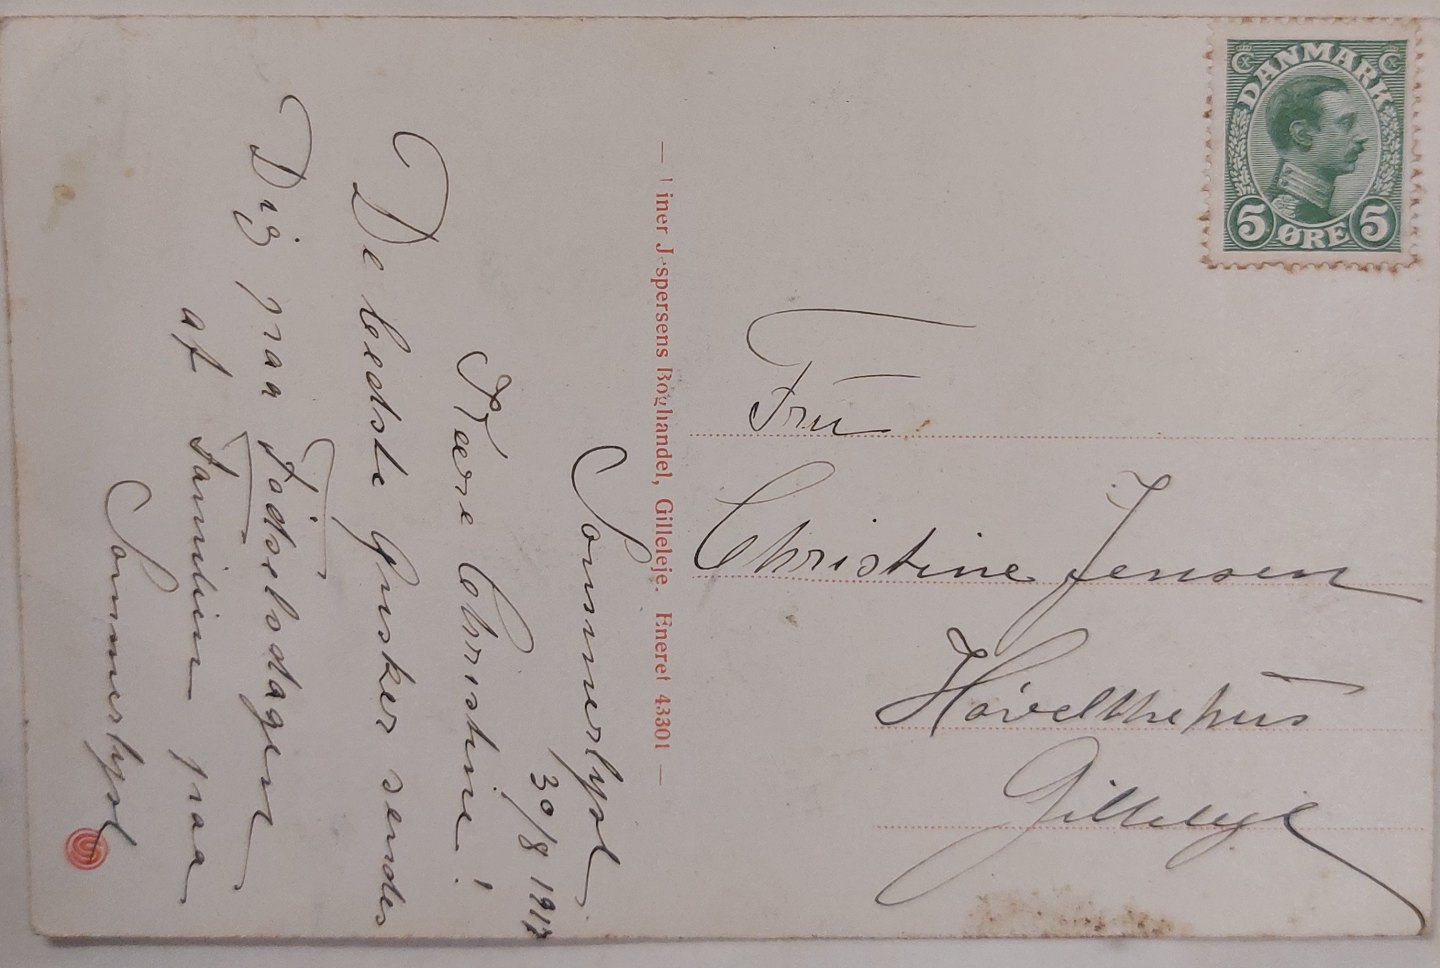 Sommerlyst
30/8 1917
Kære Christine!
De bedste Ønsker sendes
Dig paa Fødselsdagen
af Familien paa
Sommerlyst
iner Jespersens Boghandel, Gilleleje. Eneret 43301
DANMARK
5 ØRE 5
Fru
Christine Jensen
Gilleleje